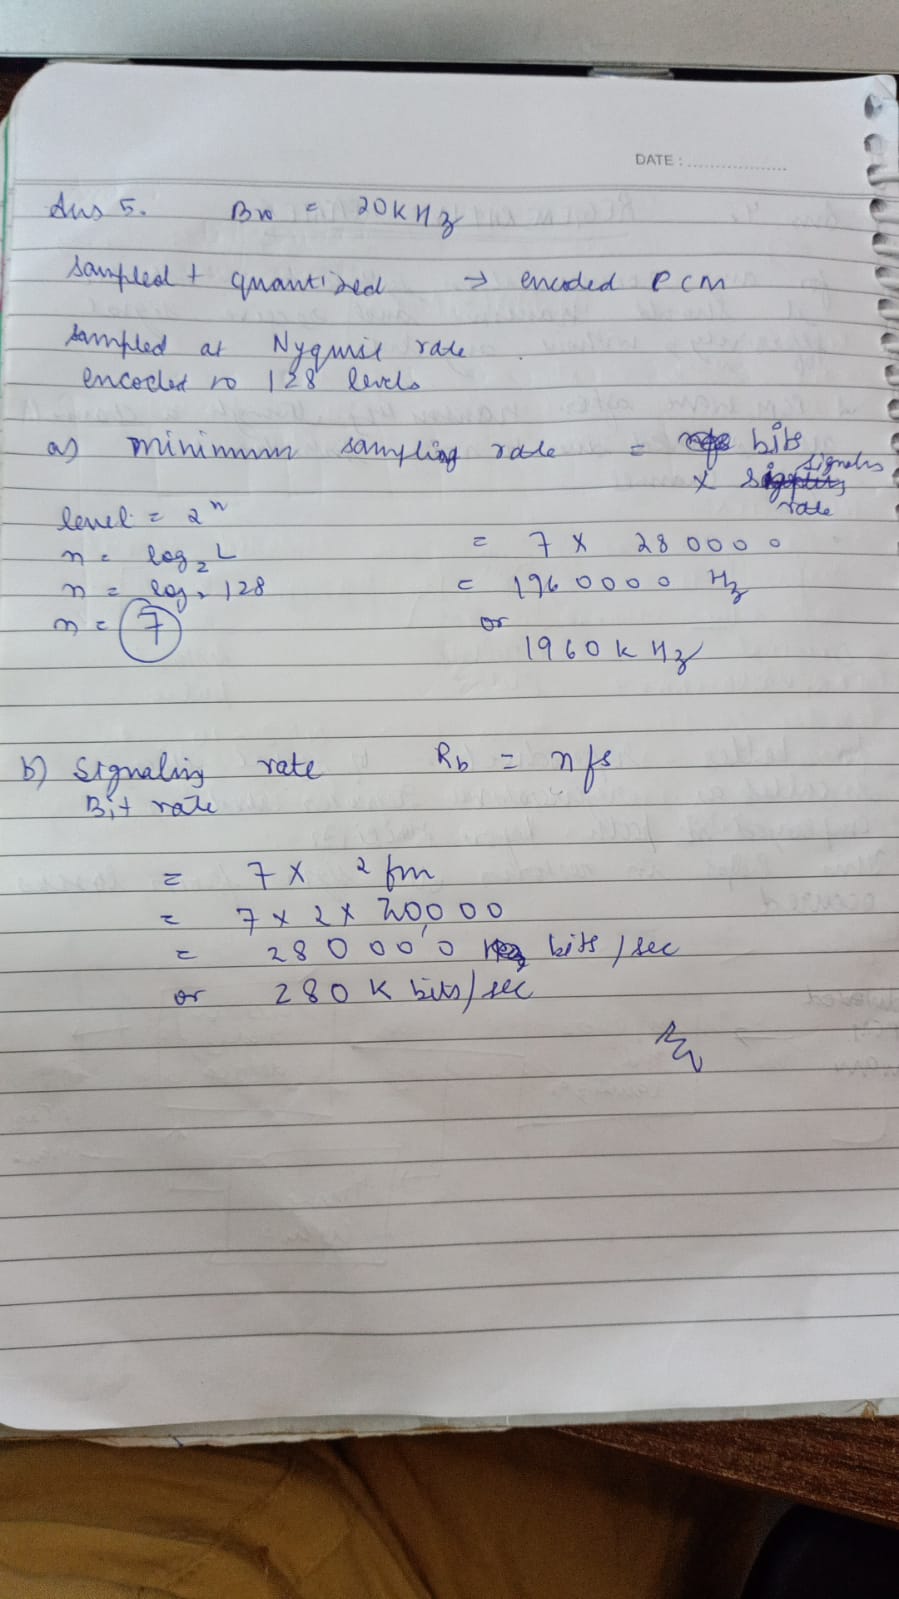 DATE : ..................
Ans 5. Bw = 20KHz
sampled + quantized → encoded PCM
sampled at Nyquist rate
encoded to 128 levels
a) minimum sampling rate = bits
x signaling rate
level = 2^n
n = log₂ L
n = log₂ 128
n = 7
= 7 x 280000
= 1960000 Hz
or
1960 k Hz
b) Signaling rate Rb = nfs
Bit rate
= 7 x 2 fm
= 7 x 2 x 20,000
= 280000 bits / sec
or 280 K bits/sec